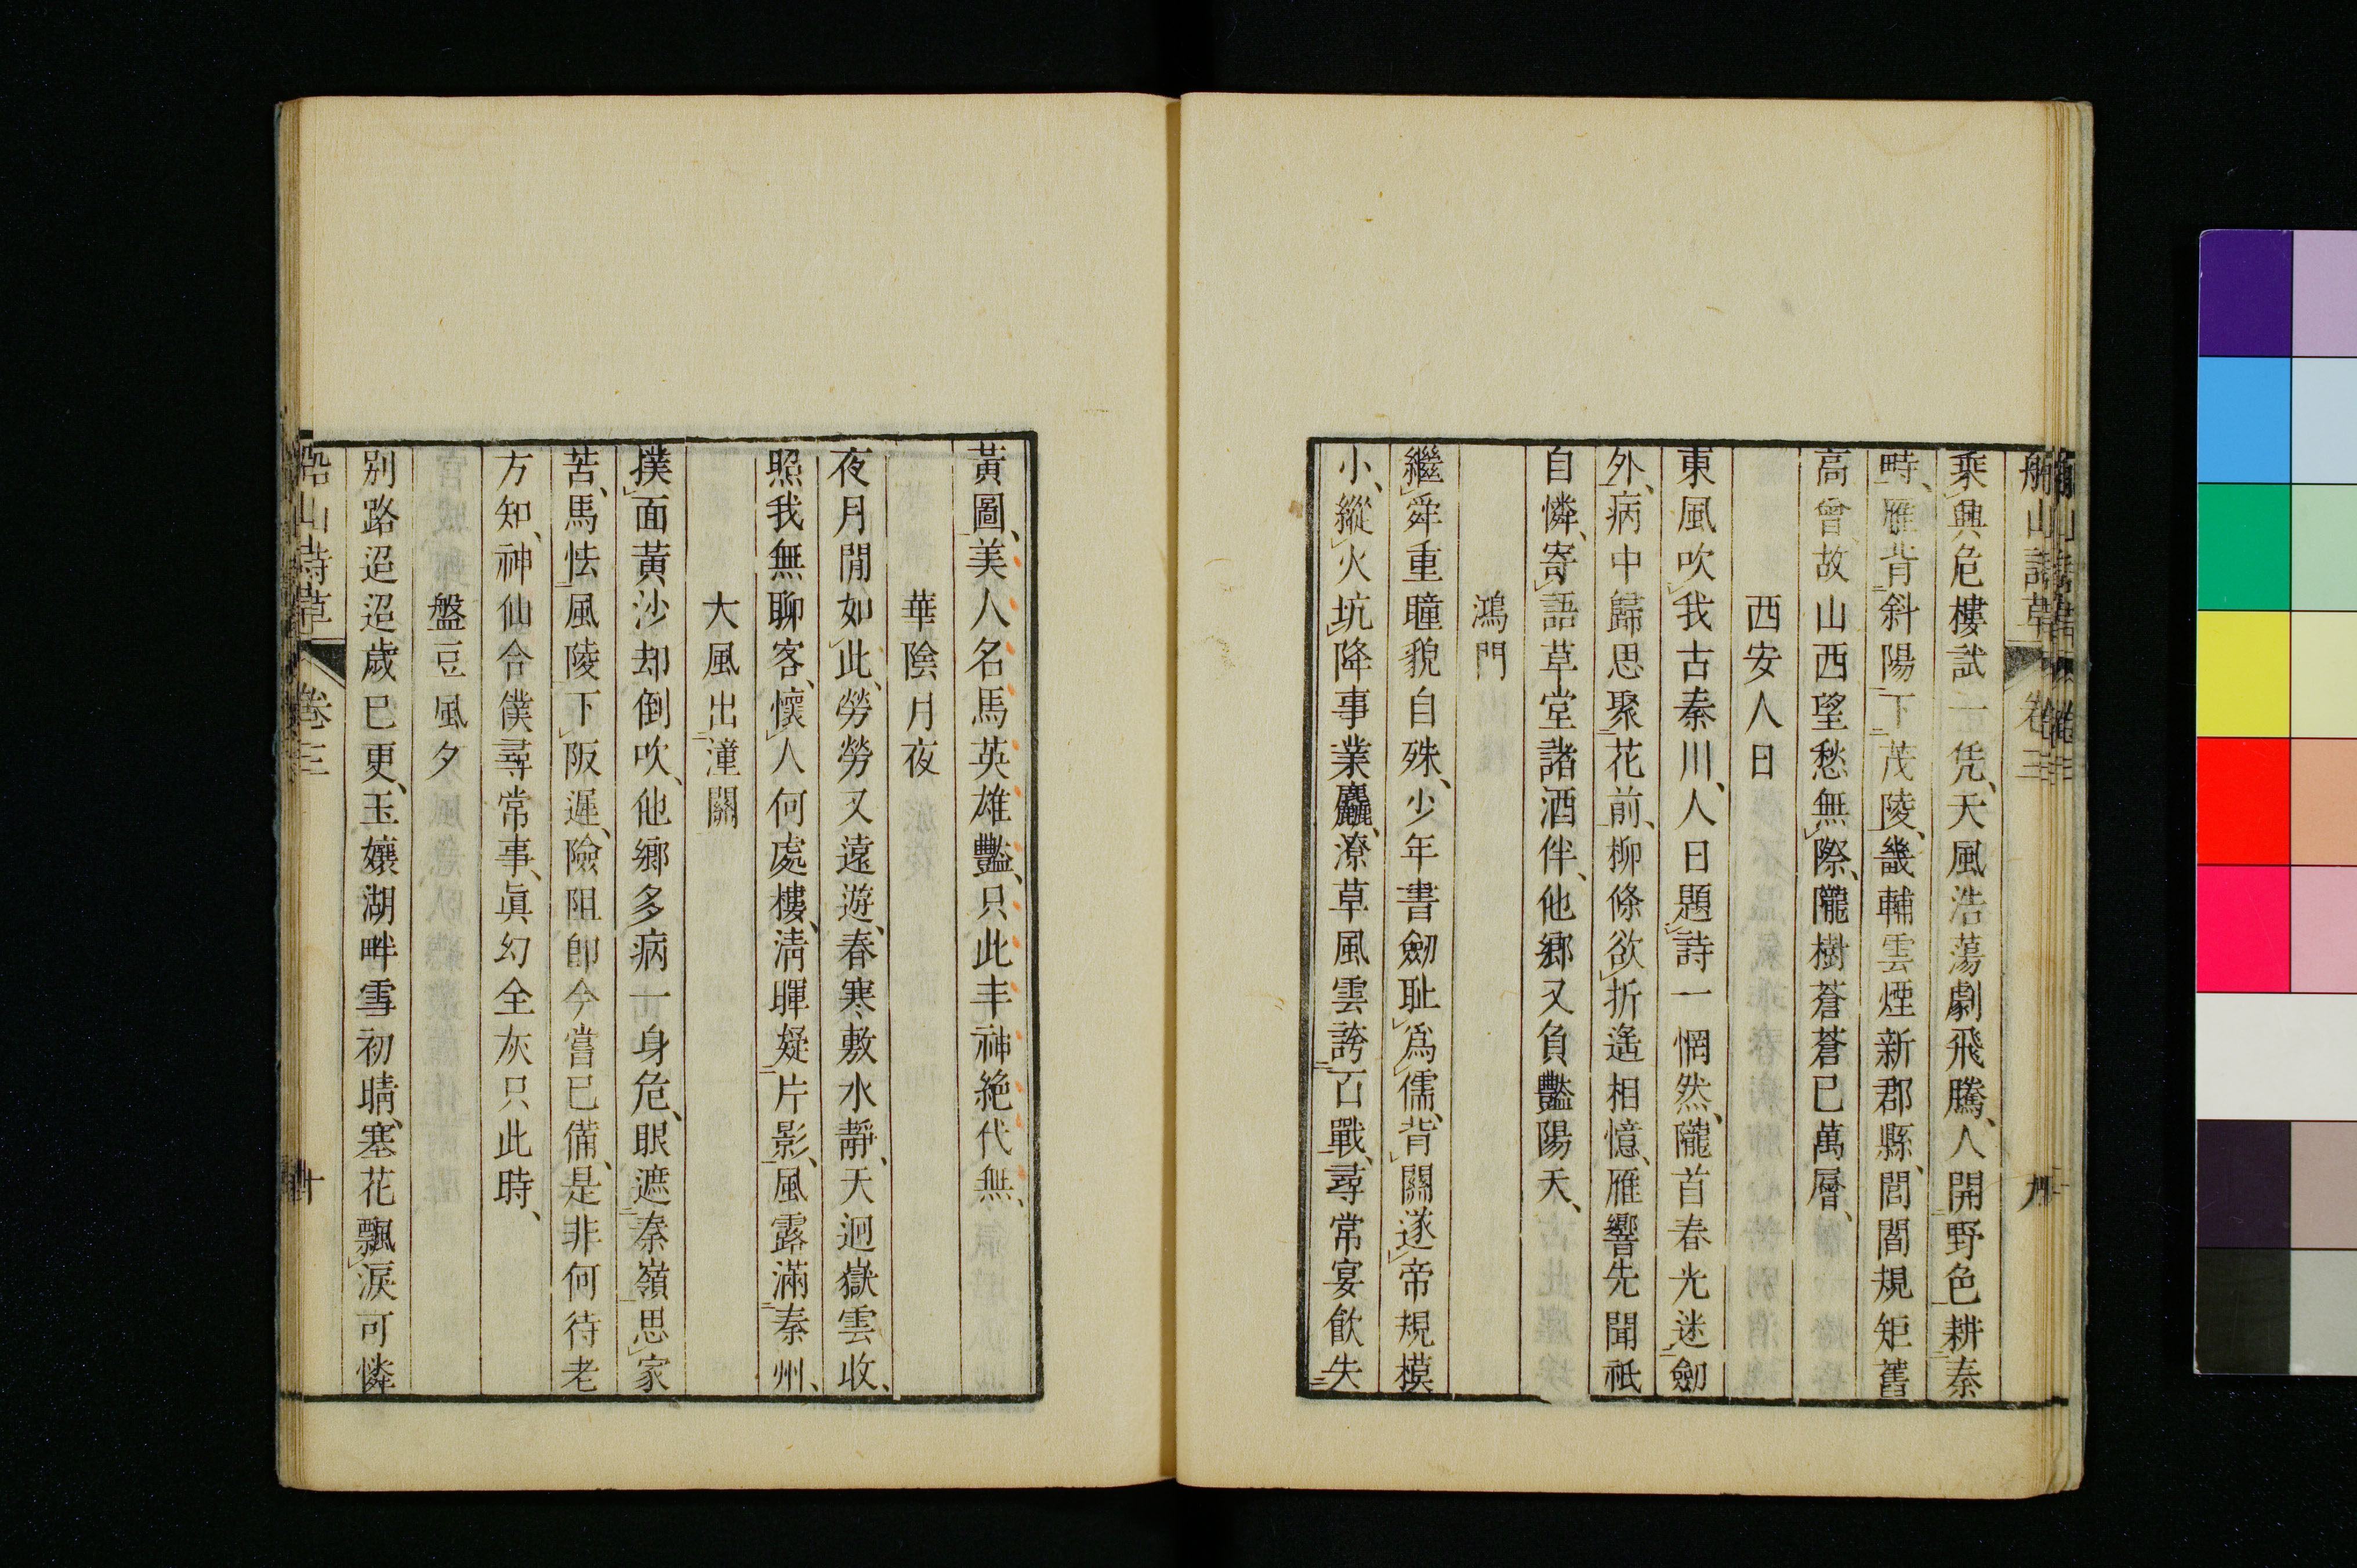 船山詩草 卷三 九
乘興危樓試一凭、天風浩蕩劇飛騰、人開野色耕秦
畤、雁背斜陽下茂陵、畿輔雲煙新郡縣、閭閻規矩舊
高曾故山西望愁無際、隴樹蒼蒼已萬層、
西安人日
東風吹我古秦川、人日題詩一惘然、隴首春光迷劒
外、病中歸思聚花前、柳條欲折遙相憶、雁響先聞祗
自憐、寄語草堂諸酒伴、他鄉又負豔陽天、
鴻門
繼舜重瞳貌自殊、少年書劒恥爲儒、背關遂帝規模
小、縱火坑降事業麤、潦草風雲誇百戰、尋常宴飲失
黃圖、美人名馬英雄豔、只此丰神絶代無、
華陰月夜
夜月閒如此、勞勞又遠遊、春寒敷水靜、天迥嶽雲收、
照我無聊客、懷人何處樓、清暉疑片影、風露滿秦州、
大風出潼關
撲面黃沙却倒吹、他鄉多病一身危、眼遮秦嶺思家
苦、馬怯風陵下阪遲、險阻卽今嘗已備、是非何待老
方知、神仙合僕尋常事、眞幻全灰只此時、
盤豆風夕
別路迢迢歲已更、玉孃湖畔雪初晴、塞花飄淚可憐
船山詩草 卷三 十